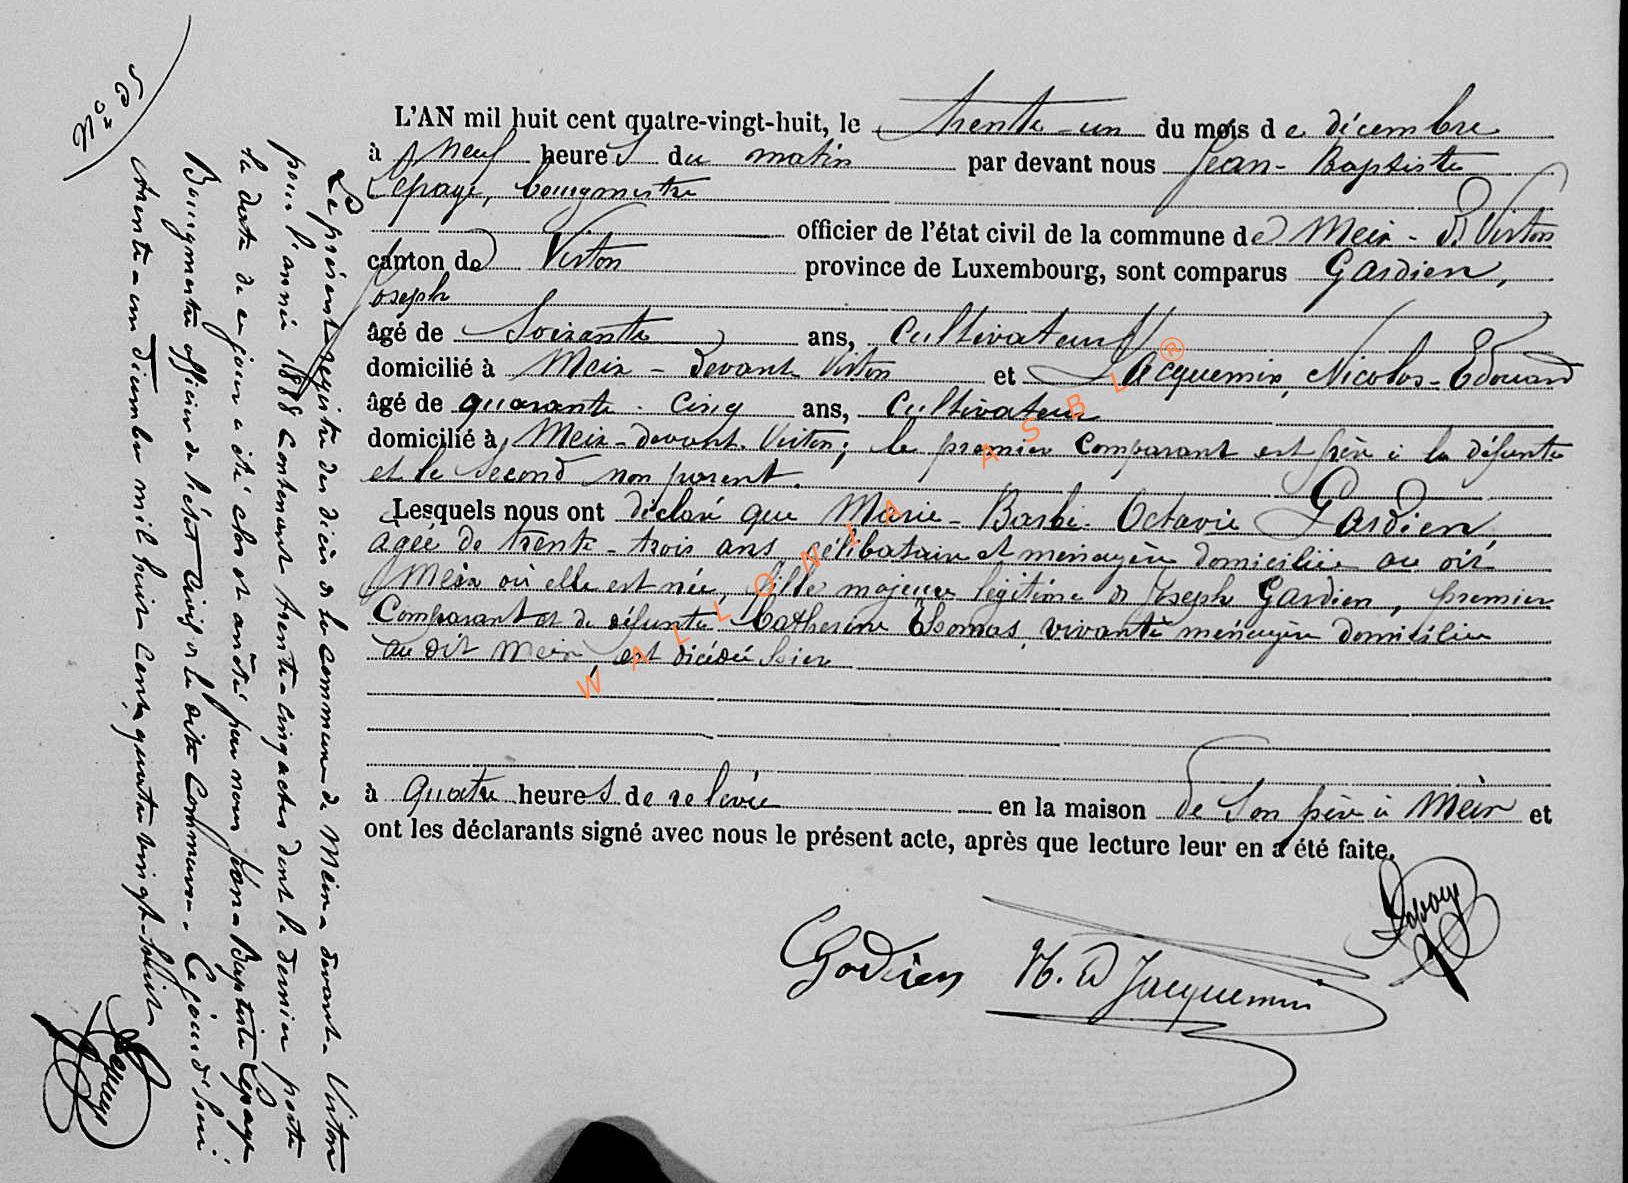 L'AN mil huit cent quatre-vingt-huit, le trente-un du mois de décembre
à neuf heures du matin par devant nous Jean-Baptiste
Lepage, bourgmestre
officier de l'état civil de la commune de Meix-Dt Virton
canton de Virton province de Luxembourg, sont comparus Gardien,
Joseph
âgé de Soixante ans, Cultivateur
domicilié à Meix-Devant Virton et Jacquemin, Nicolas-Edouard
âgé de quarante-cinq ans, Cultivateur
domicilié à Meix-devant Virton; le premier Comparant est père à la défunte
et le Second non parent.
Lesquels nous ont déclaré que Marie-Barbe-Octavie Gardien
agée de trente-trois ans célibataire et ménagère domiciliée au dit
Meix où elle est née, fille majeure légitime de Joseph Gardien, premier
Comparant et de défunte Catherine Thomas, vivante ménagère domiciliée
au dit Meix, est décédée hier
à quatre heures de relevée en la maison de Son père à Meix et
ont les déclarants signé avec nous le présent acte, après que lecture leur en a été faite.
Lepage
Gardien N. Ed Jacquemin
Le présent registre des décès de la Commune de Meix-devant-Virton
pour l'année 1888 Contenant trente-cinq actes dont le dernier porte
la date de ce jour a été clos et arrêté par nous Jean-Baptiste Lepage
Bourgmestre officier de l'état Civil de la dite Commune. Ce jourd'hui
trente-un décembre mil huit Cent quatre vingt-huit
Lepage
N° 35
WALLONIA ASBL ®